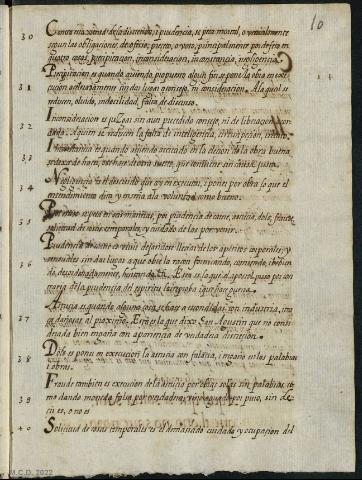 10
30 Contra esta virtud de la discreción, i prudencia, se peca mortal, o venialmente
segun las obligaciones de oficio; precto, o voto; principalmente por defeto en
quatro cosas, precipitacion, inconsideracion, inconstancia, negligencia.
31 Precipitacion es quando aviendo propuesto algun fin se pone la obra en exe-
cucion aceleradamente sin dar lugar a consejo, ni consideracion. A la qual se
reducen, olvido, indocilidad, falta de discurso.
32 Inconsideracion es que sin aver precedido consejo, ni deliberacion
A quien se reducen la falta de inteligencia, circunspecion,
33 Inconstancia es quando aviendo acertado en la elecion de la obra buena
se dexa de hacer, o se hace de otra suerte, que conviene sin causa justa.
34 Negligencia es el descuido que ay en executar, i poner por obra lo que el
entendimiento dita y enseña a la voluntad como bueno.
35 Por exceso se peca en seis maneras, por prudencia de carne, astucia, dolo, fraude,
solicitud de cosas temporales, y cuidado de las por venir.
36 Prudencia de carne o vicio desordena llevar de los apetitos corporales, y
sensuales sin dar lugar a que obre la razon fornicando, comiendo, i bebien-
do, desordenadamente, hurtando. Esta es lo que el apostol puso por con-
traria de la prudencia del espiritu
37 Astucia es quando alguna cosa se hace a escondidas con industria, i ma-
ña dañosa al proximo. Esta es la que dixo San Agustin que no consi-
derada bien engaña con apariencia de verdadera discrecion.
38 Dolo es poner en execucion la astucia con falacia, i engaño en las palabras
i obras.
39 Fraude tambien es execucion de la astucia por obras solas sin palabras, co-
mo dando moneda falsa por verdadera, vino aguado por puro, sin de-
cir es, o no es
40 Solicitud de cosas temporales es el demasiado cuidado y ocupacion del
M.C.D. 2022